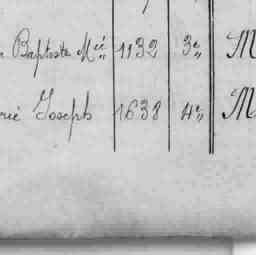 Baptiste Mié 1132 3e M
rie Joseph 1638 4e M